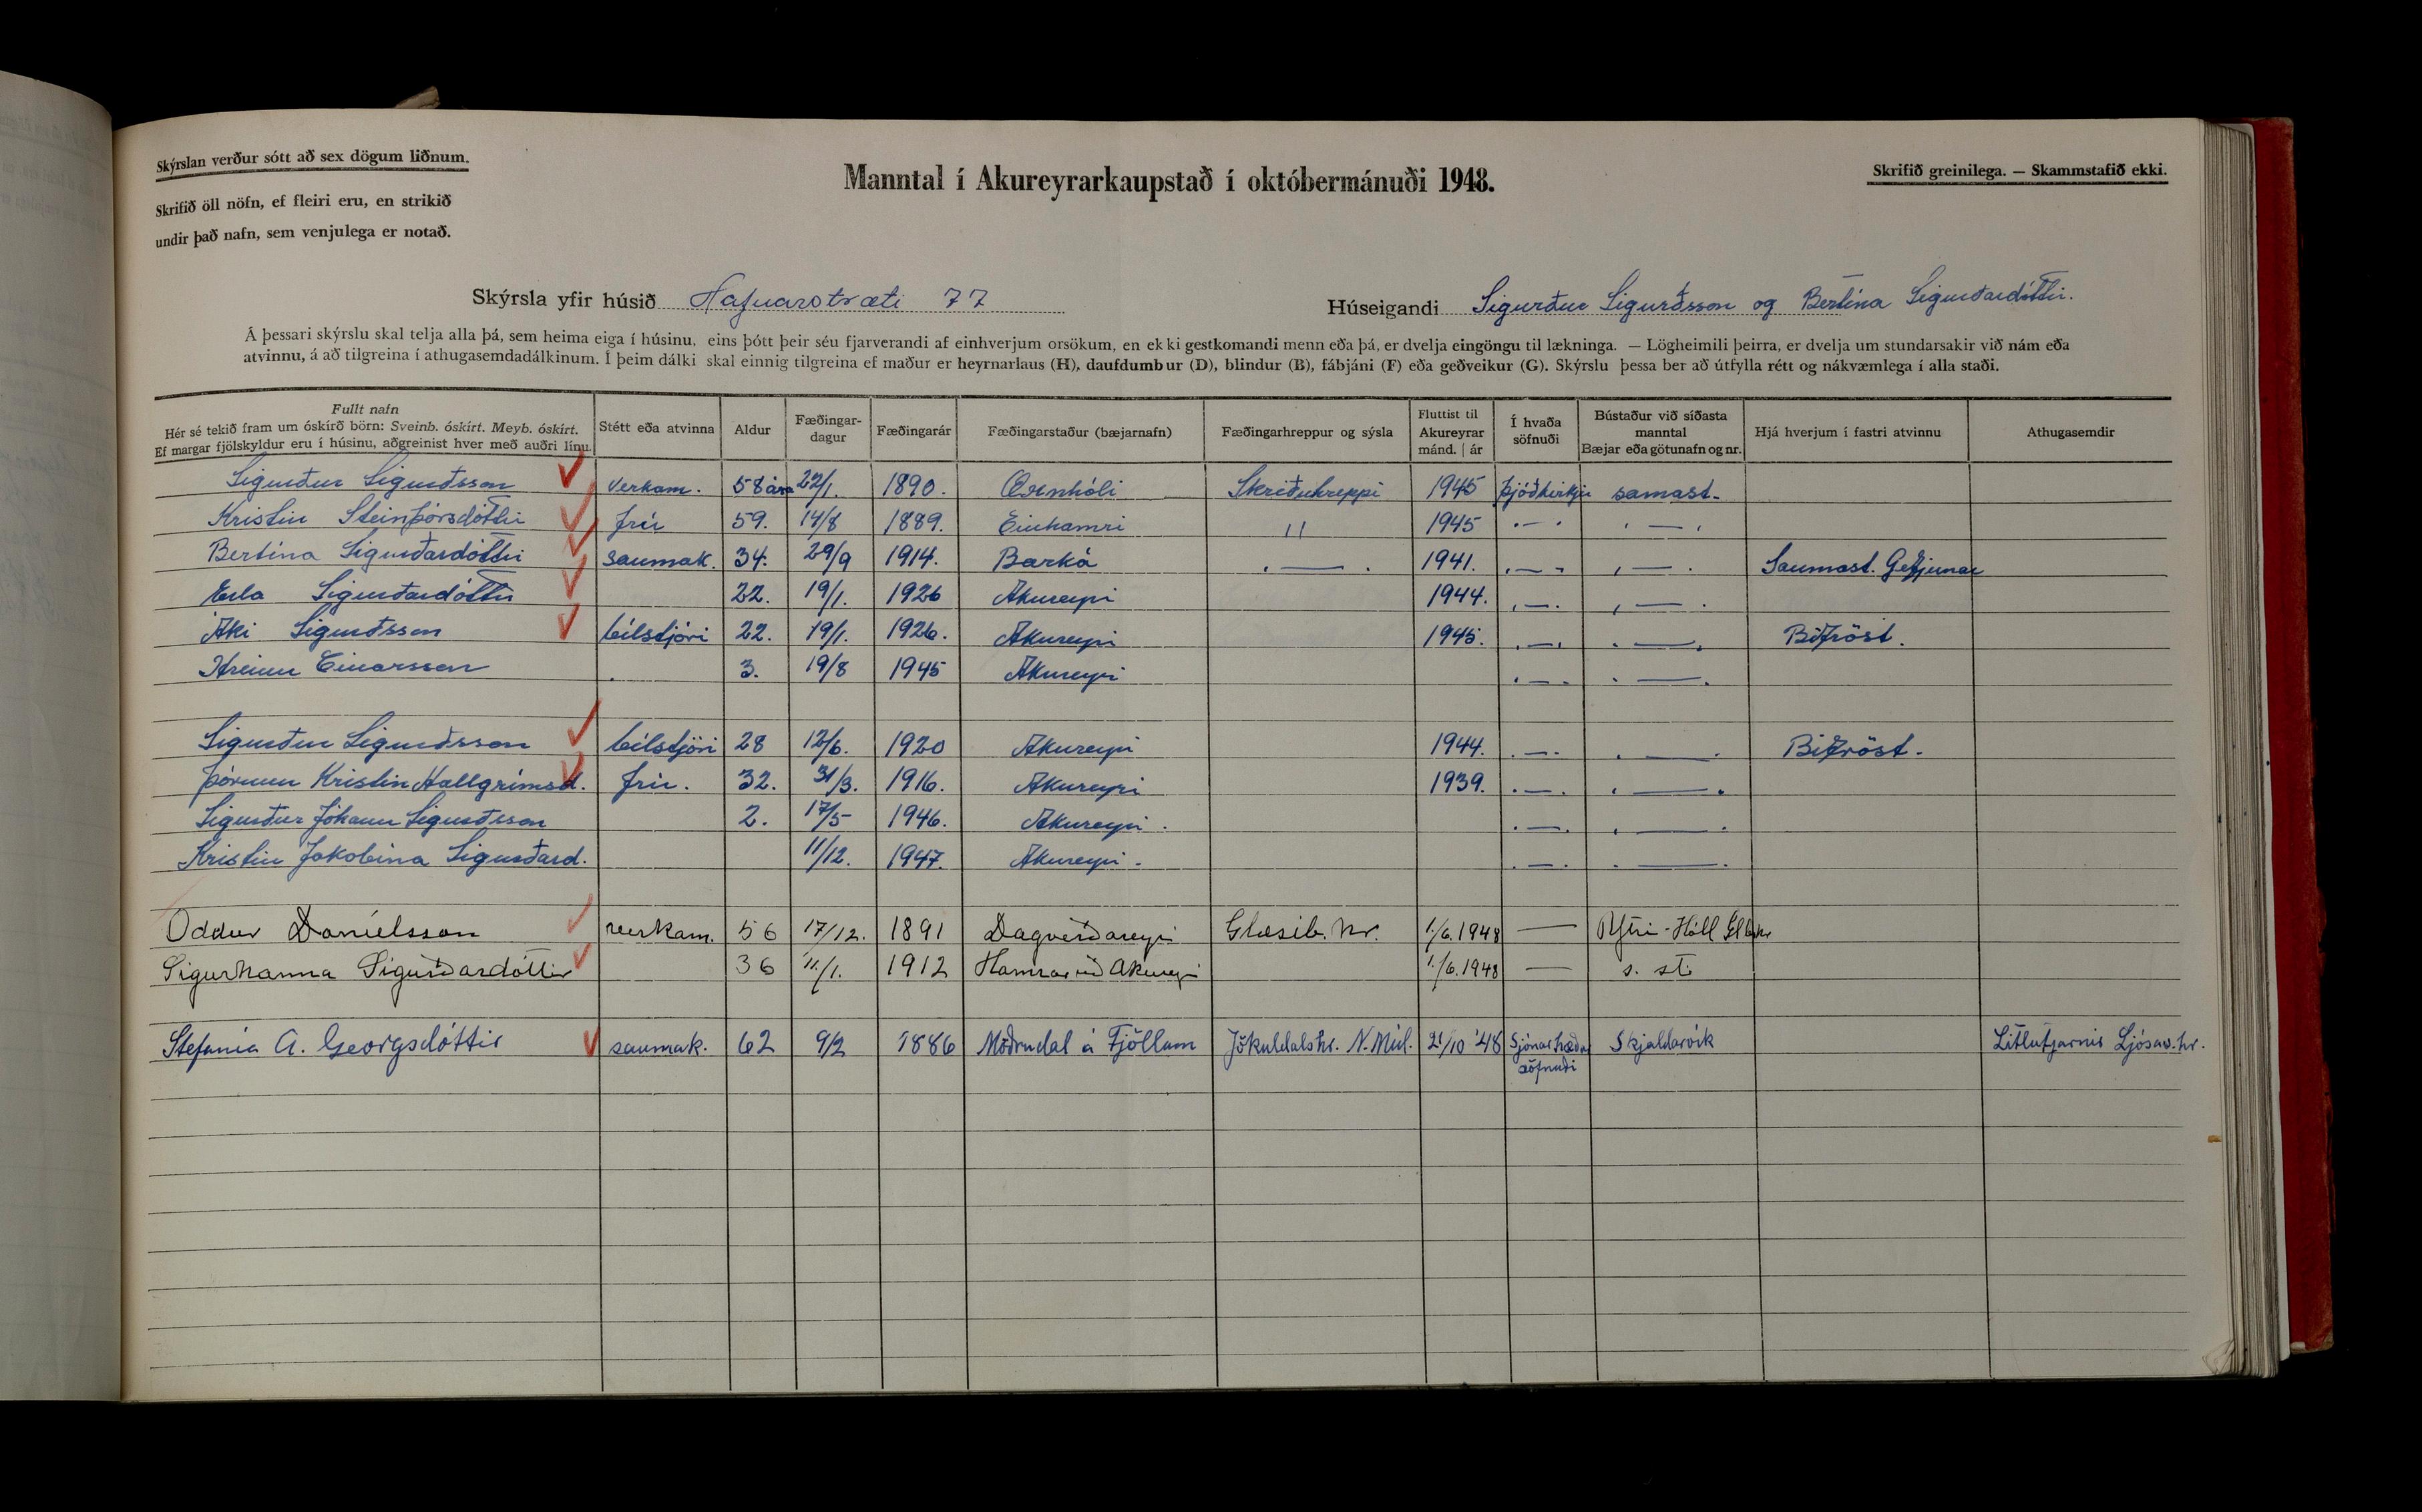 Skýrslan verður sótt að sex dögum liðnum.
Skrifið öll nöfn, ef fleiri eru, en strikið
undir það nafn, sem venjulega er notað.
Manntal í Akureyrarkaupstað í októbermánuði 1948.
Skrifið greinilega. — Skammstafið ekki.
Skýrsla yfir húsið Hafnarstræti 77
Húseigandi Sigurður Sigurðsson og Bertína Sigurðardóttir.
Á þessari skýrslu skal telja alla þá, sem heima eiga í húsinu, eins þótt þeir séu fjarverandi af einhverjum orsökum, en ekki gestkomandi menn eða þá, er dvelja eingöngu til lækninga. — Lögheimili þeirra, er dvelja um stundarsakir við nám eða
atvinnu, á að tilgreina í athugasemdadálkinum. Í þeim dálki skal einnig tilgreina ef maður er heyrnarlaus (H), daufdumbur (D), blindur (B), fábjáni (F) eða geðveikur (G). Skýrslu þessa ber að útfylla rétt og nákvæmlega í alla staði.
Fullt nafn
Hér sé tekið fram um óskírð börn: Sveinb. óskírt. Meyb. óskírt.
Ef margar fjölskyldur eru í húsinu, aðgreinist hver með auðri línu.
Stétt eða atvinna
Aldur
Fæðingar-
dagur
Fæðingarár
Fæðingarstaður (bæjarnafn)
Fæðingarhreppur og sýsla
Fluttist til
Akureyrar
mánd. | ár
Í hvaða
söfnuði
Bústaður við síðasta
manntal
Bæjar eða götunafn og nr.
Hjá hverjum í fastri atvinnu
Athugasemdir
Sigurður Sigurðsson verkam. 58 ára 22/1. 1890. Öxnhóli Skriðuhreppi 1945 þjóðkirkju samast.
Kristín Steinþórsdóttir frú 59. 14/8 1889. Einhamri " 1945 . — . . — .
Bertína Sigurðardóttir saumak. 34. 29/9 1914. Barká . — . 1941. . — . . — . Saumast. Gefjunar
Erla Sigurðardóttir 22. 19/1. 1926 Akureyri 1944. . — . . — .
Áki Sigurðsson bílstjóri 22. 19/1. 1926. Akureyri 1945. . — . . — . Bifröst.
Hreinn Einarsson 3. 19/8 1945 Akureyri . — . . — .
Sigurður Sigurðsson bílstjóri 28 12/6. 1920 Akureyri 1944. . — . . — . Bifröst.
Þórunn Kristín Hallgrímsd. frú. 32. 31/3. 1916. Akureyri 1939. . — . . — .
Sigurður Jóhann Sigurðsson 2. 17/5 1946. Akureyri . . — . . — .
Kristín Jakobína Sigurðard. 11/12. 1947. Akureyri . . — . . — .
Oddur Daníelsson verkam. 56 17/12. 1891 Dagverðareyri Glæsib. hr. 1./6. 1948 — Ytri-Hóll
Sigurhanna Sigurðardóttir 36 11./1. 1912 Hamrar við Akureyri 1./6. 1948 — s. st.
Stefanía A. Georgsdóttir saumak. 62 9/2 1886 Möðrudal á Fjöllum Jökuldalshr. N.Múl. 21/10 '48 Sjónarhæðar Skjaldarvík Litlutjarnir Ljósav.hr.
söfnuði